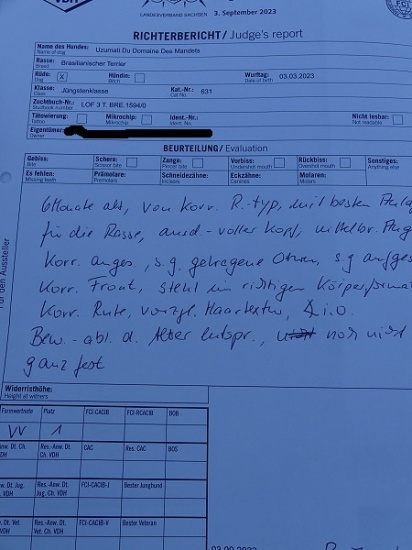 VDH
LANDESVERBAND SACHSEN
3. September 2023
RICHTERBERICHT / Judge's report
Name des Hundes: Uzumati Du Domaine Des Mandets
Name of dog
Rasse: Brasilianischer Terrier
Breed
Rüde: X Hündin: Wurftag: 03.03.2023
Dog Bitch Date of birth
Klasse: Jüngstenklasse Kat.-Nr.: 631
Class Cat.-No
Zuchtbuch-Nr.: LOF 3 T. BRE.1594/0
Studbook number
Tätowierung: Mikrochip: Ident.-Nr.: Nicht lesbar:
Tattoo Microchip Ident. No. Not readable
Eigentümer:
Owner
BEURTEILUNG / Evaluation
Gebiss: Schere: Zange: Vorbiss: Rückbiss: Sonstiges:
Bite Scissor bite Pincer bite Undershot mouth Overshot mouth Anything else
Es fehlen: Prämolare: Schneidezähne: Eckzähne: Molaren:
Missing teeth Premolars Incisors Canines Molars
6 Monate alt, von korr. R.-typ, mit besten
für die Rasse, ausd.-voller Kopf, mittelbr.
korr. anges., s.g. getragene Ohren, s.g.
korr. Front, steht im richtigen
korr. Rute, vorzgl. Haartextur, & i.O.
Bew.-abl. d. Alter entspr., noch nicht
ganz fest
Für den Aussteller
Widerristhöhe:
Height at withers
Formwertnote Platz FCI-CACIB FCI-RCACIB BOB
VV 1
Anw. Dt. Ch. VDH Res.-Anw. Dt. Ch. VDH CAC Res. CAC BOS
Anw. Dt. Jug. Ch. VDH Res.-Anw. Dt. Jug. Ch. VDH FCI-CACIB-J Bester Junghund
Anw. Dt. Vet. Ch. VDH Res.-Anw. Dt. Vet. Ch. VDH FCI-CACIB-V Bester Veteran